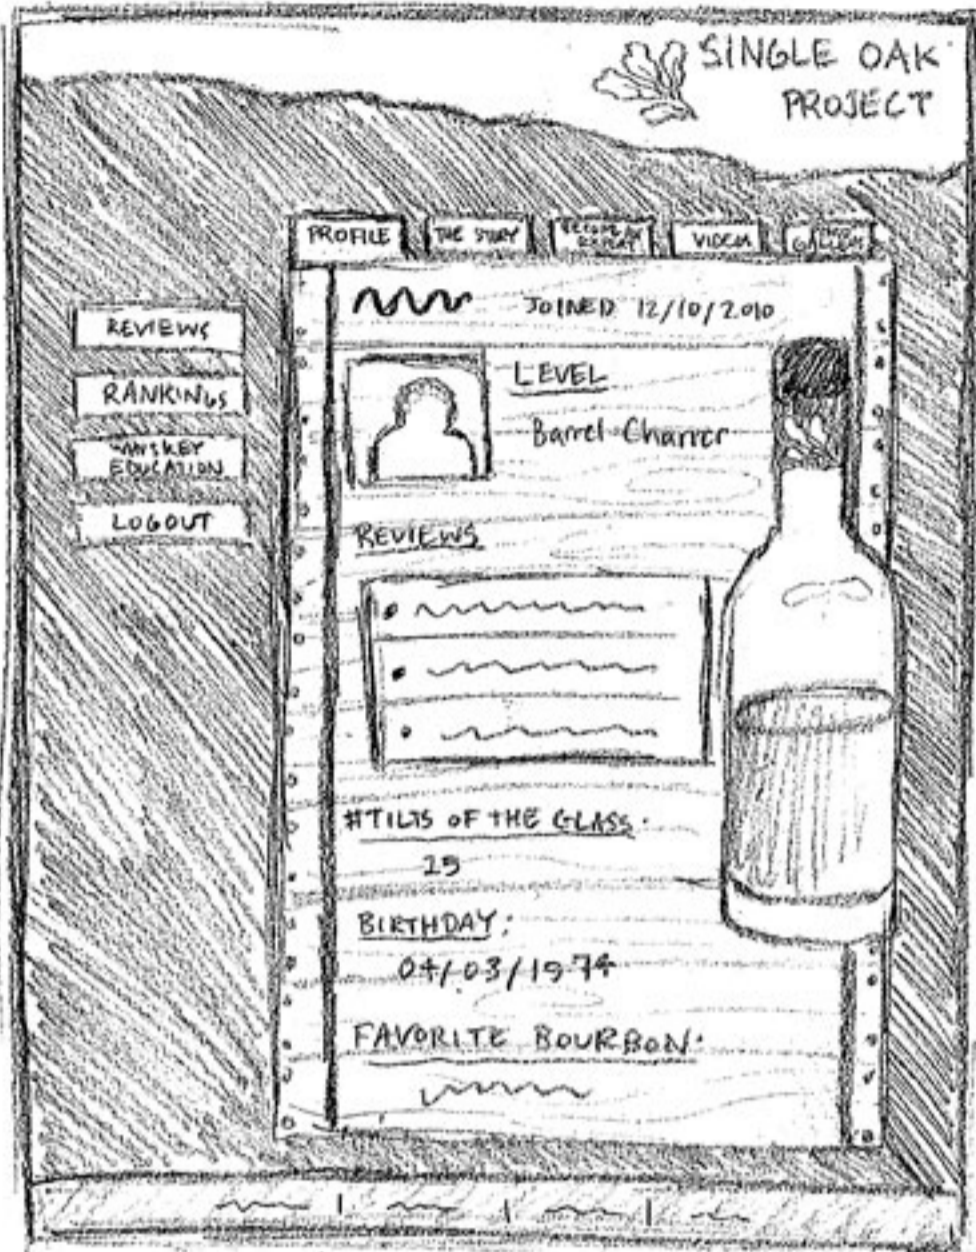 SINGLE OAK
PROJECT
PROFILE
THE STORY
BECOME AN
EXPERT
VIDEOS
PHOTO
GALLERY
REVIEWS
RANKINGS
WHISKEY
EDUCATION
LOGOUT
JOINED 12/10/2010
LEVEL
Barrel Charrer
REVIEWS
#TILTS OF THE GLASS:
25
BIRTHDAY:
04/03/1974
FAVORITE BOURBON: